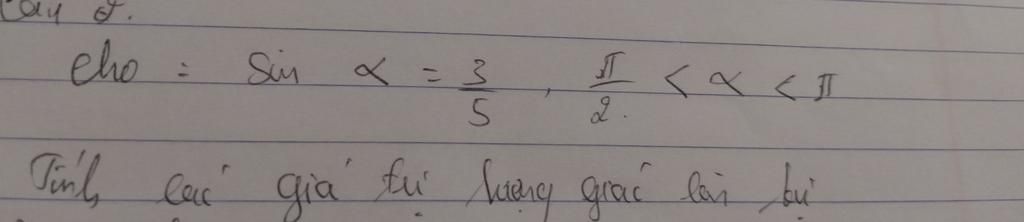 Câu 2.
cho : sin α = 3/5 , π/2. < α < π
Tính các giá trị lượng giác còn lại